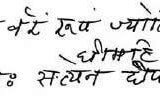 र्वरं रूपं ज्योति
धीमहि
: सत्येन दीप